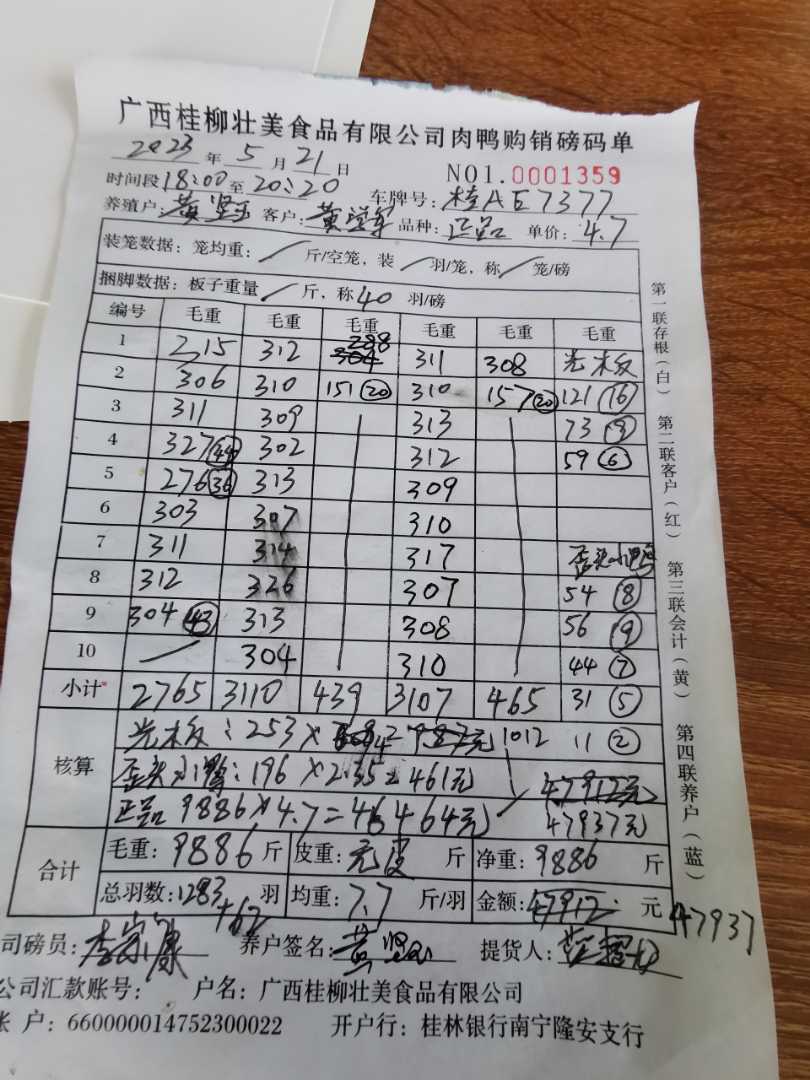 广西桂柳壮美食品有限公司肉鸭购销磅码单
2023年5月21日 NO1.0001359
时间段18:00至20:20 车牌号:桂AE7377
养殖户:黄坚玉 客户:黄 品种:正品 单价:4.7
装笼数据:笼均重:/斤/空笼,装/羽/笼,称/笼/磅
捆脚数据:板子重量/斤,称40羽/磅
编号 毛重 毛重 毛重 毛重 毛重 毛重
1 315 312 288 311 308 光木板
2 306 310 151(20) 310 157(20) 121(16)
3 311 309 313 73(9)
4 327 302 312 59(6)
5 276(36) 313 309
6 303 307 310
7 311 314 317 歪头小鸭
8 312 326 307 54(8)
9 304(43) 313 308 56(9)
10 / 304 310 44(7)
小计 2765 3110 439 3107 465 31(5)
核算 光木板:253×4= 1012 11(2)
歪头小鸭:196×2.35=461元 47912元
正品9886×4.7=46464元 47937元
合计 毛重:9886斤 皮重:无皮斤 净重:9886斤
总羽数:1283+62羽 均重:7.7斤/羽 金额:47912元 47937
司磅员:李 康 养户签名:黄坚玉 提货人:
公司汇款账号: 户名:广西桂柳壮美食品有限公司
账 户:660000014752300022 开户行:桂林银行南宁隆安支行
第一联存根(白) 第二联客户(红) 第三联会计(黄) 第四联养户(蓝)